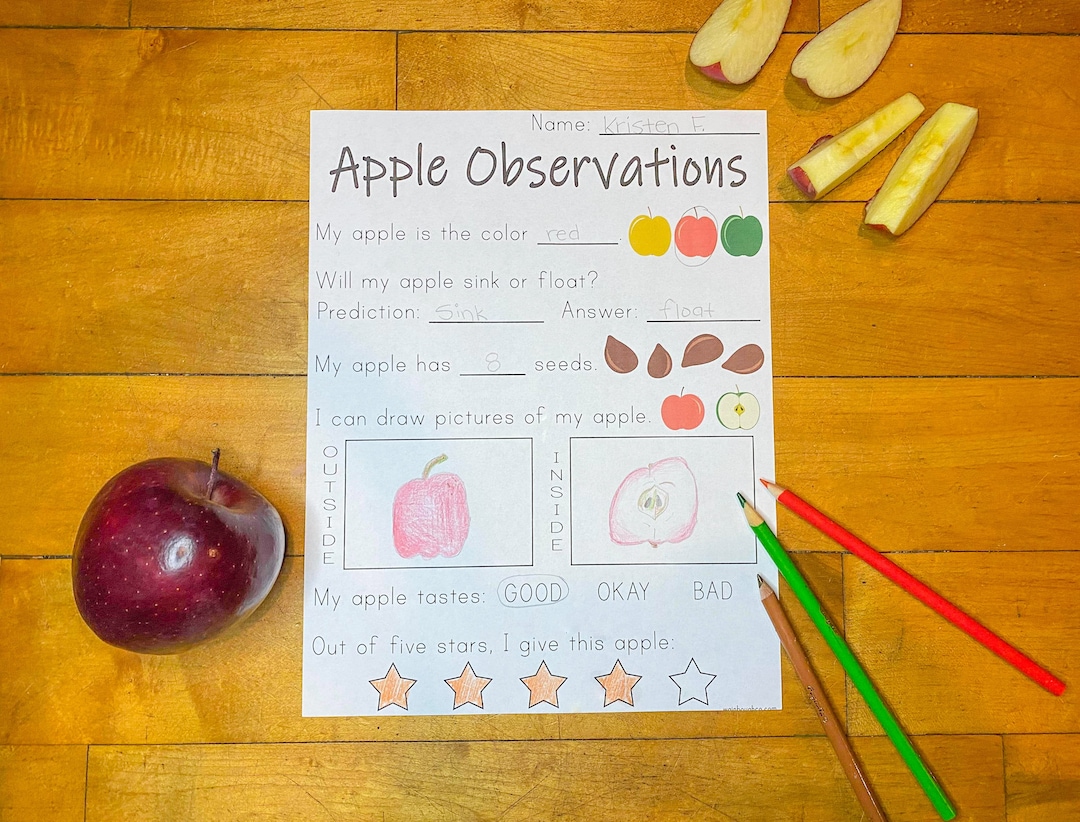 Name: Kristen F.
Apple Observations
My apple is the color red.
Will my apple sink or float?
Prediction: Sink Answer: float
My apple has 8 seeds.
I can draw pictures of my apple.
OUTSIDE
INSIDE
My apple tastes: GOOD OKAY BAD
Out of five stars, I give this apple: